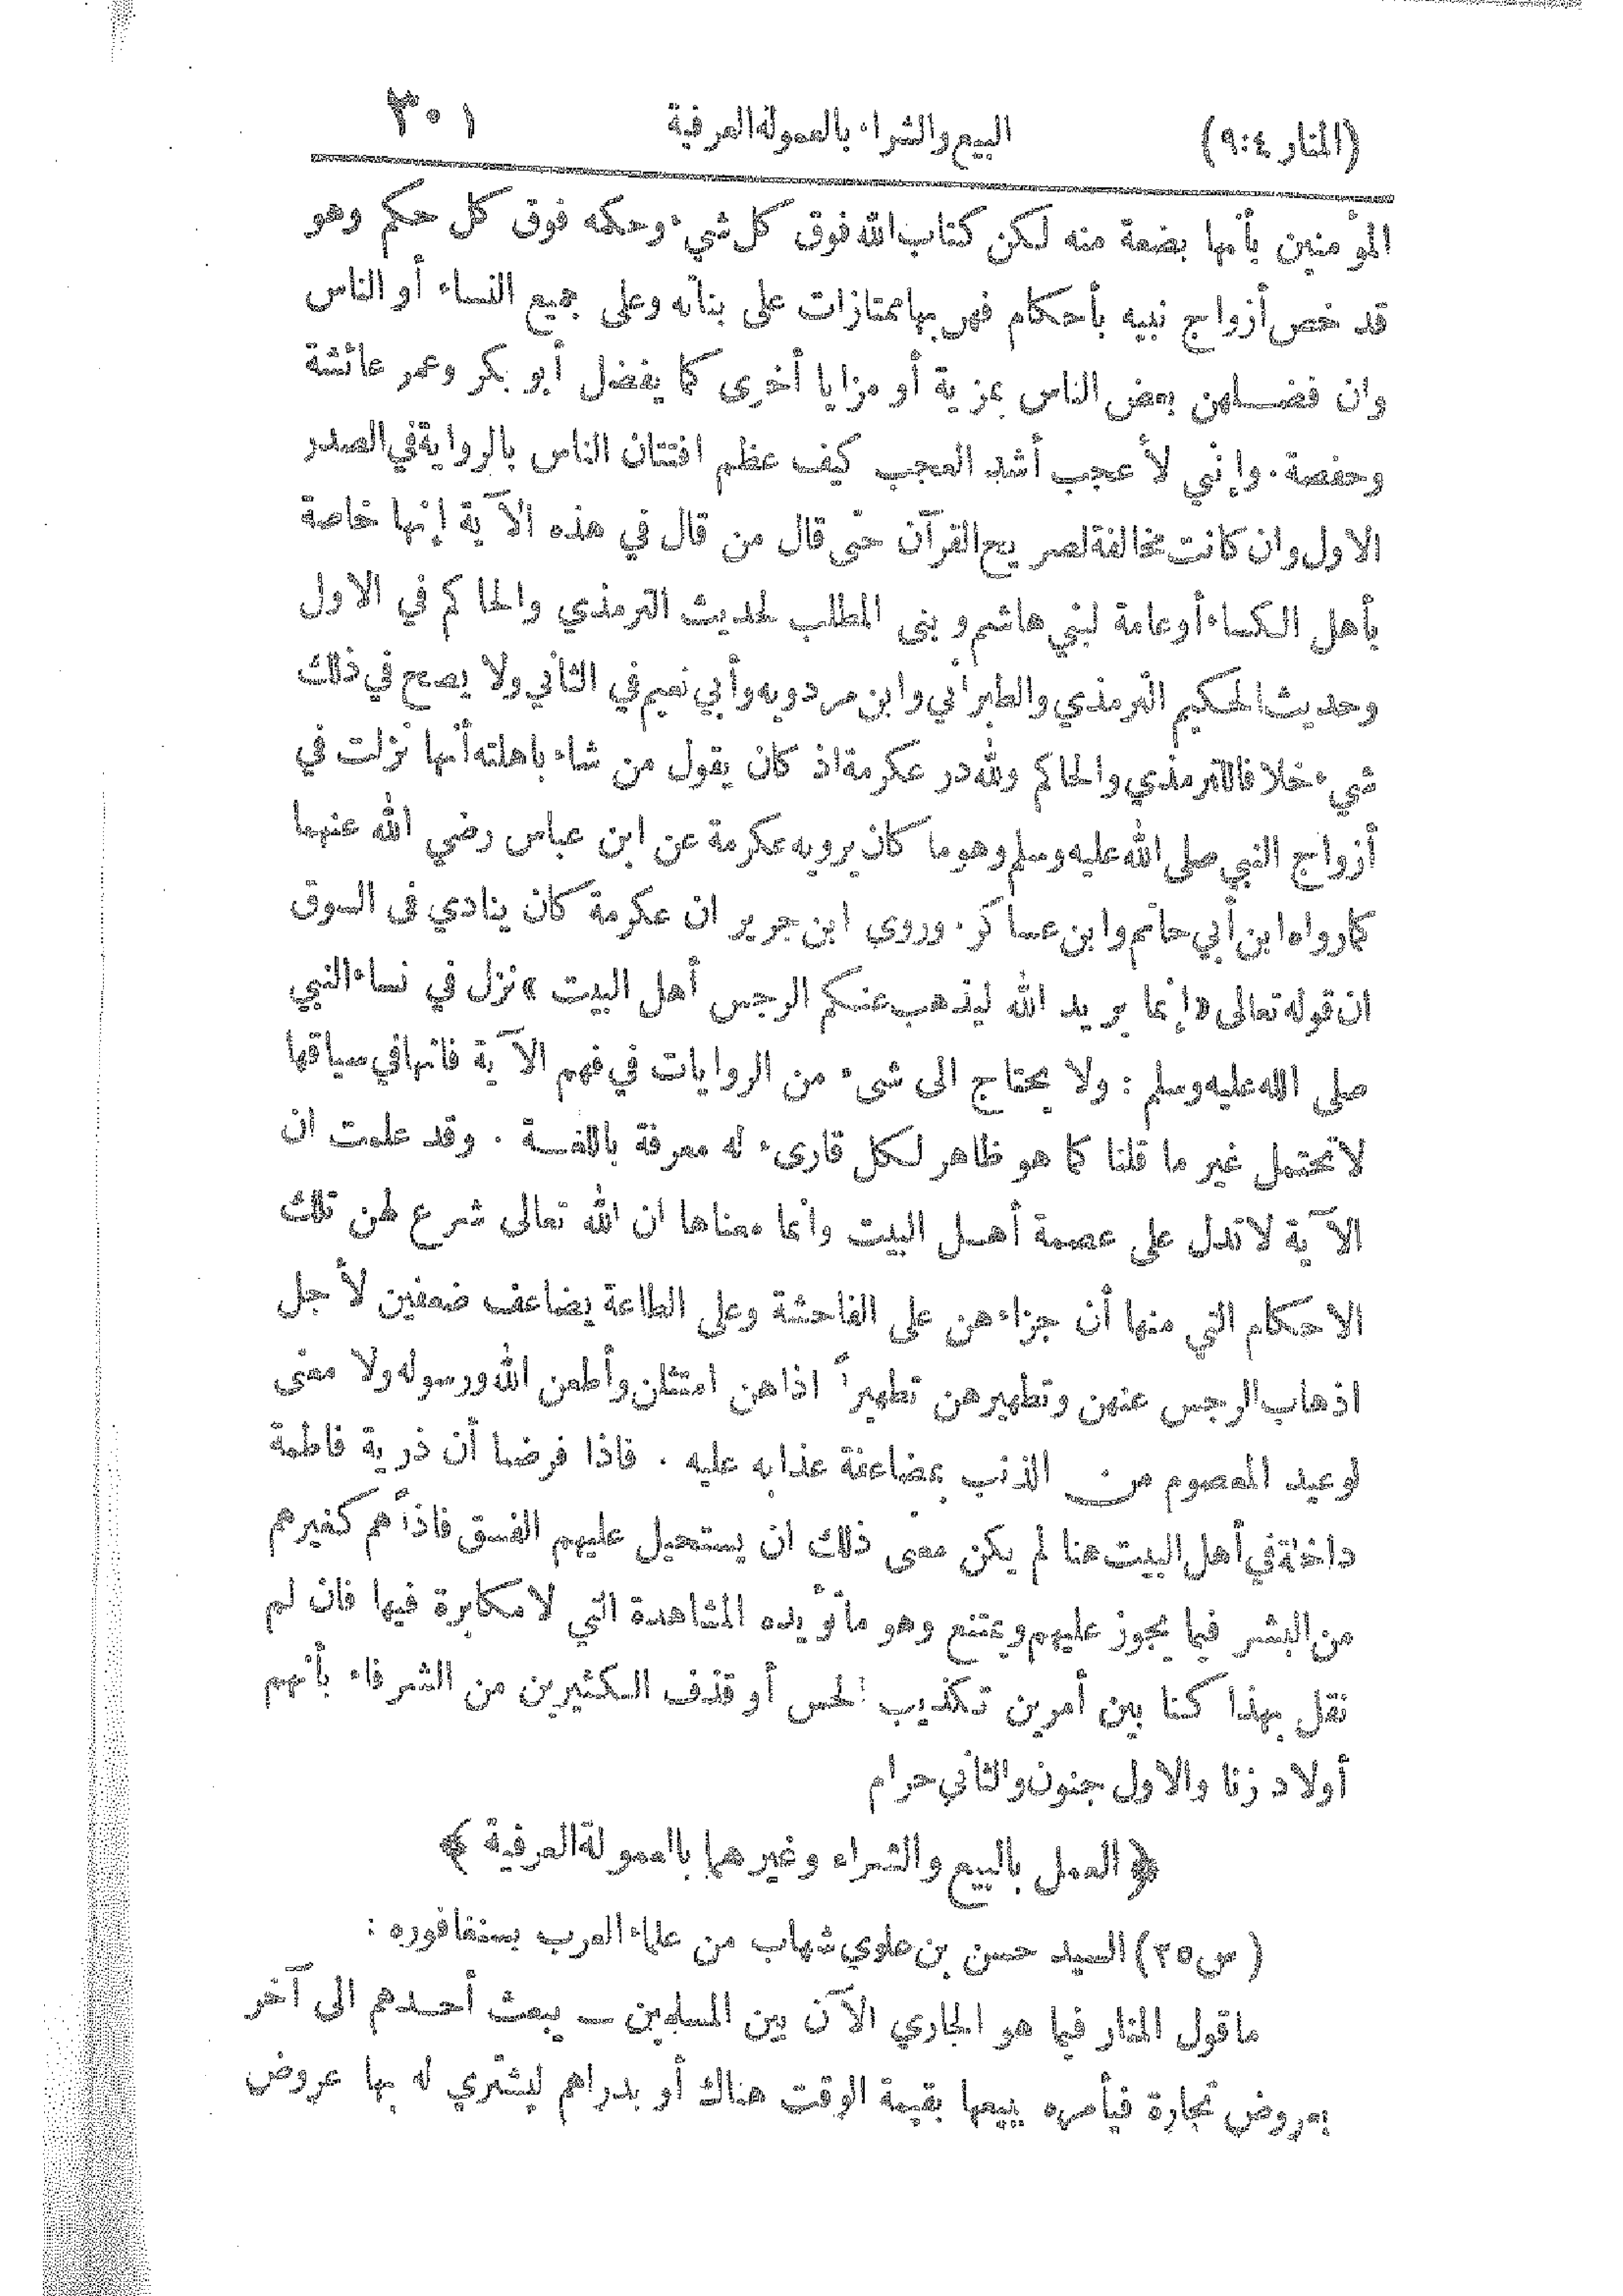 (المنار ٤:٩) البيع والشراء بالعمولة العرفية ٣٠١
المؤمنين بأنها بضعة منه لكن كتاب الله فوق كل شيء وحكمه فوق كل حكم وهو
قد خص أزواج نبيه بأحكام فهن بها ممتازات على بناته وعلى جميع النساء أو الناس
وان فضلهن بعض الناس بمزية أو مزايا أخرى كما يفضل أبو بكر وعمر عائشة
وحفصة . وإني لأعجب أشد العجب كيف عظم افتتان الناس بالرواية في الصدر
الاول وان كانت مخالفة لصريح القرآن حتى قال من قال في هذه الآية إنها خاصة
بأهل الكساء أو عامة لبني هاشم وبنى المطلب لحديث الترمذي والحاكم في الاول
وحديث الحكيم الترمذي والطبراني وابن مردويه وأبي نعيم في الثاني ولا يصح في ذلك
شيء خلافا للترمذي والحاكم ولله در عكرمة اذ كان يقول من شاء باهلته أنها نزلت في
أزواج النبي صلى الله عليه وسلم وهو ما كان يرويه عكرمة عن ابن عباس رضي الله عنهما
كما رواه ابن أبي حاتم وابن عساكر . وروى ابن جرير ان عكرمة كان ينادي فى السوق
ان قوله تعالى «إنما يريد الله ليذهب عنكم الرجس أهل البيت» نزل في نساء النبي
صلى الله عليه وسلم : ولا يحتاج الى شىء من الروايات في فهم الآية فانها في سياقها
لا تحتمل غير ما قلنا كما هو ظاهر لكل قارىء له معرفة باللغة . وقد علمت ان
الآية لا تدل على عصمة أهل البيت وانما معناها ان الله تعالى شرع لهن تلك
الاحكام التي منها أن جزاءهن على الفاحشة وعلى الطاعة يضاعف ضعفين لأجل
اذهاب الرجس عنهن وتطهيرهن تطهيراً اذا هن امتثلن وأطعن الله ورسوله ولا معنى
لوعيد المعصوم من الذنب بمضاعفة عذابه عليه . فاذا فرضنا أن ذرية فاطمة
داخلة في أهل البيت هنا لم يكن معنى ذلك ان يستحيل عليهم الفسق فاذاً هم كغيرهم
من البشر فيما يجوز عليهم ويمتنع وهو ما تؤيده المشاهدة التي لا مكابرة فيها فان لم
نقل بهذا كنا بين أمرين تكذيب الحس أو قذف الكثيرين من الشرفاء بأنهم
أولاد زنا والاول جنون والثاني حرام
﴿ العمل بالبيع والشراء وغيرهما بالعمولة العرفية ﴾
(س٢٥) السيد حسن بن علوي شهاب من علماء العرب بسنغافوره :
ما قول المنار فيما هو الجاري الآن بين المسلمين ــ يبعث أحدهم الى آخر
بعروض تجارة فيأمره ببيعها بقيمة الوقت هناك أو بدراهم ليشتري له بها عروض